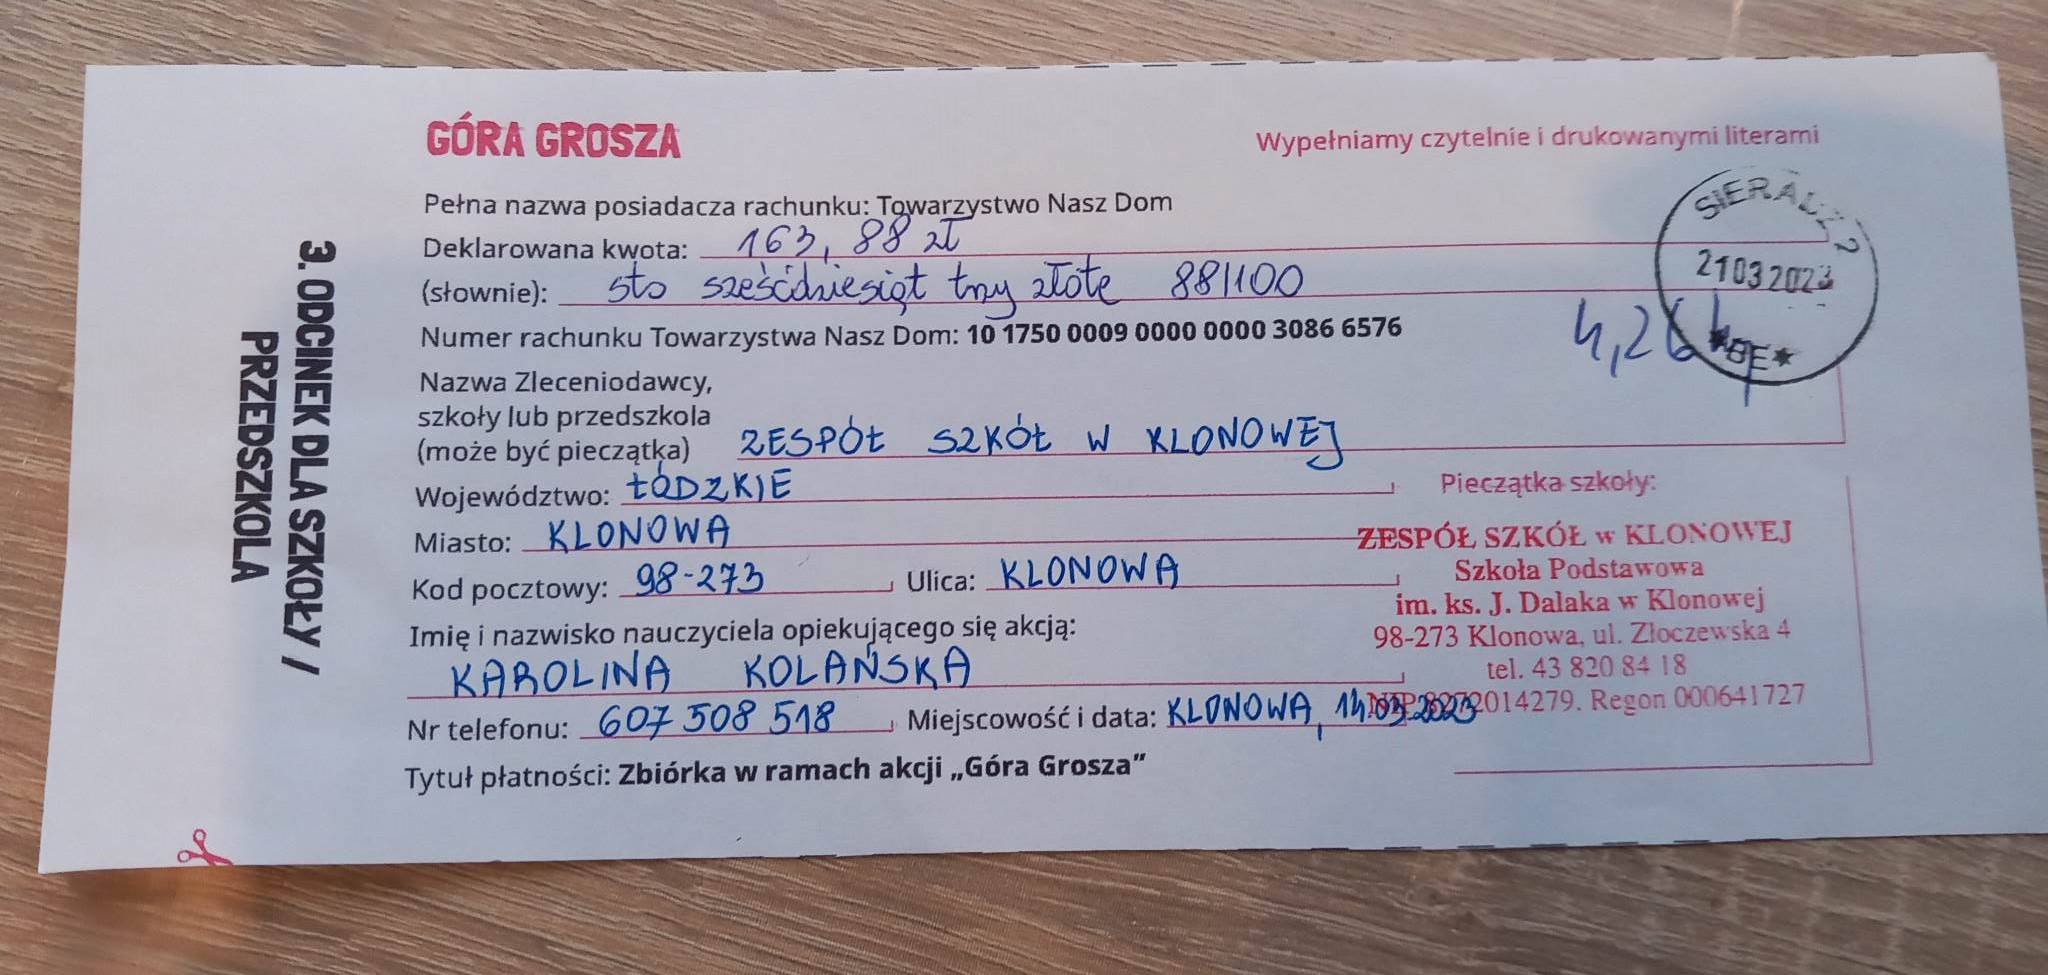 GÓRA GROSZA
Wypełniamy czytelnie i drukowanymi literami
3. ODCINEK DLA SZKOŁY /
PRZEDSZKOLA
Pełna nazwa posiadacza rachunku: Towarzystwo Nasz Dom
Deklarowana kwota: 163,88 zł
(słownie): sto sześćdziesiąt trzy złote 88/100
Numer rachunku Towarzystwa Nasz Dom: 10 1750 0009 0000 0000 3086 6576
SIERADZ 2
21032023
4,26
Nazwa Zleceniodawcy,
szkoły lub przedszkola
(może być pieczątka) ZESPÓŁ SZKÓŁ W KLONOWEJ
Województwo: ŁÓDZKIE
Miasto: KLONOWA
Kod pocztowy: 98-273 Ulica: KLONOWA
Imię i nazwisko nauczyciela opiekującego się akcją:
KAROLINA KOLAŃSKA
Nr telefonu: 607 508 518 Miejscowość i data: KLONOWA, 14.03.2023
Tytuł płatności: Zbiórka w ramach akcji „Góra Grosza”
Pieczątka szkoły:
ZESPÓŁ SZKÓŁ w KLONOWEJ
Szkoła Podstawowa
im. ks. J. Dalaka w Klonowej
98-273 Klonowa, ul. Złoczewska 4
tel. 43 820 84 18
Regon 000641727